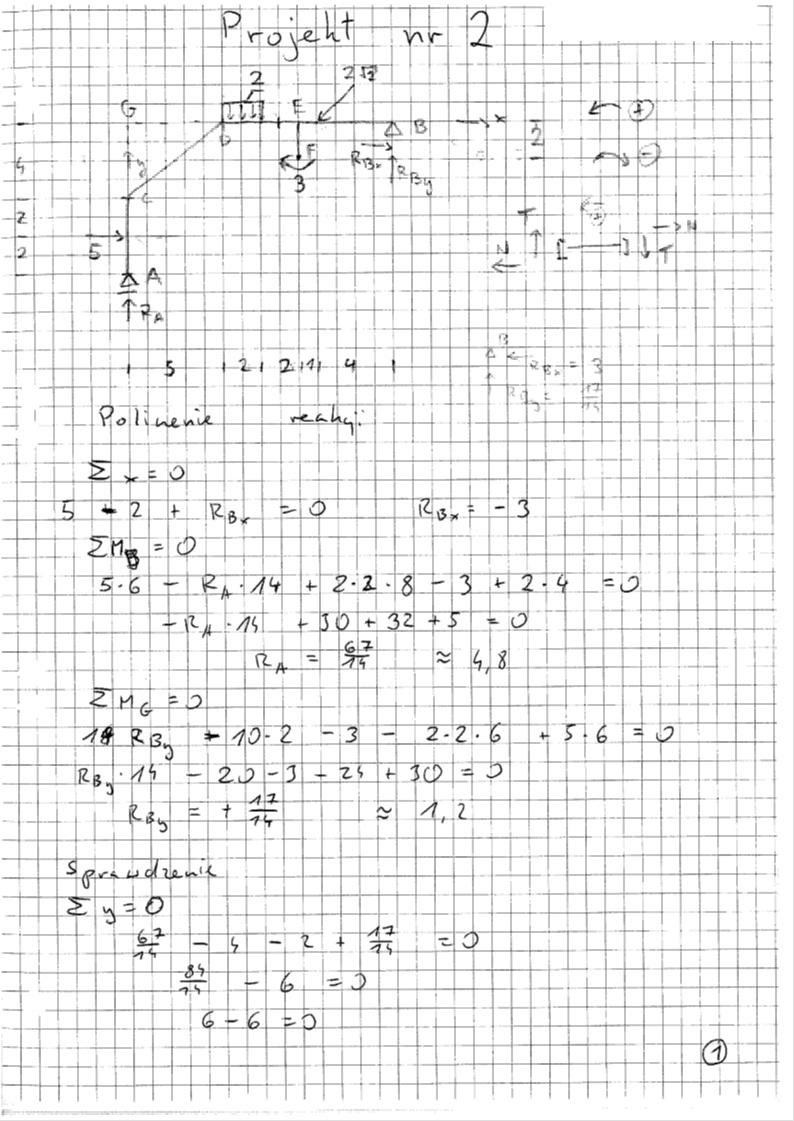 Projekt nr 2
2 2√2
G E x 2 ⊕
D B
4 y F R_Bx R_By ⊖
3
C
2 T ⊕ N
5 N T
2
A
R_A
5 2 2 1 4
B R_Bx = 3
R_By = 17/14
Policzenie reakcji
Σ x = 0
5 - 2 + R_Bx = 0 R_Bx = - 3
Σ M_B = 0
5·6 - R_A·14 + 2·2·8 - 3 + 2·4 = 0
- R_A·14 + 30 + 32 + 5 = 0
R_A = 67/14 ≈ 4,8
Σ M_G = 0
14 R_By - 10·2 - 3 - 2·2·6 + 5·6 = 0
R_By·14 - 20 - 3 - 24 + 30 = 0
R_By = + 17/14 ≈ 1,2
Sprawdzenie
Σ y = 0
67/14 - 4 - 2 + 17/14 = 0
84/14 - 6 = 0
6 - 6 = 0
1